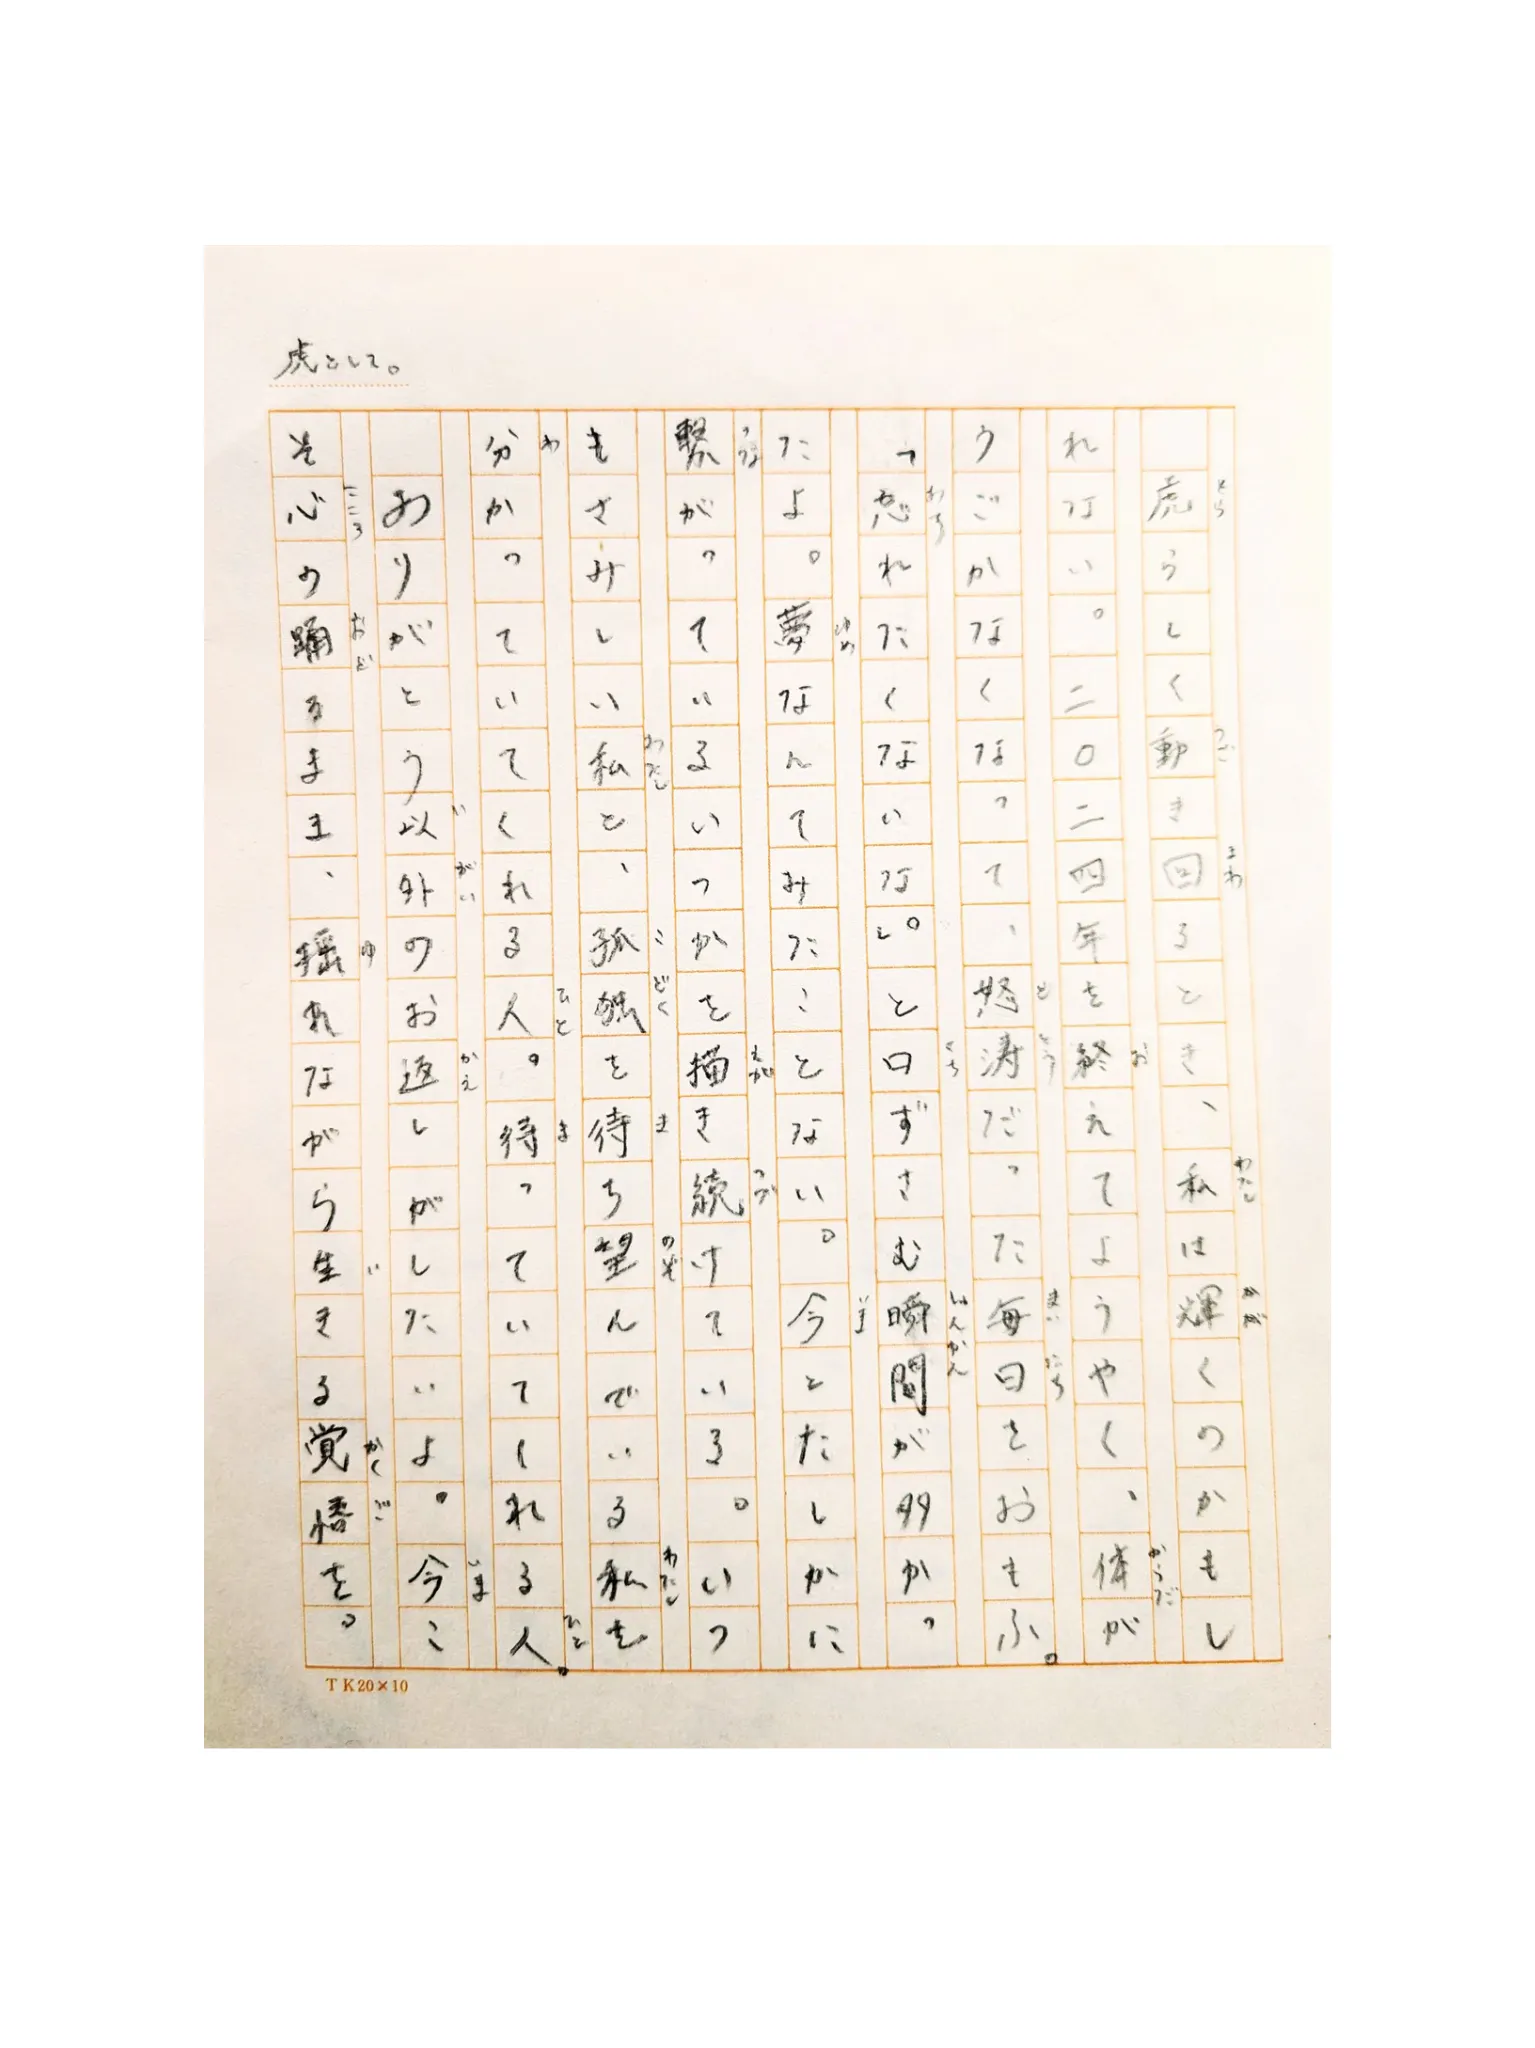 虎として。
虎らしく動き回るとき、私は輝くのかもし
れない。二〇二四年を終えてようやく、体が
うごかなくなって、怒涛だった毎日をおもふ。
「忘れたくないない。」と口ずさむ瞬間が多かっ
たよ。夢なんてみたことない。今とたしかに
繋がっているいつかを描き続けている。いつ
もさみしい私と、孤独を待ち望んでいる私を
分かっていてくれる人。待っていてくれる人。
ありがとう以外のお返しがしたいよ。今こ
そ心の踊るまま、揺れながら生きる覚悟を。
TK20×10